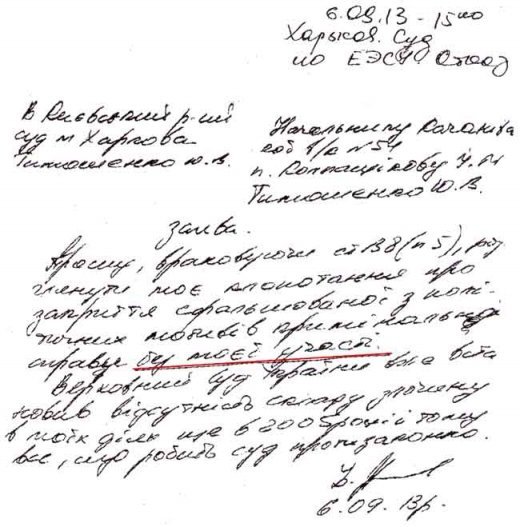 6.09.13 - 15⁰⁰
Харьков. Суд
по ЕЭСУ
В Киевський р-ний
суд м Харкова
Тимошенко Ю.В.
Начальнику Качанівс
кої в/к №54
п. Колпащікову
Тимошенко Ю.В.
заява.
Прошу, враховуючи ст 138 (п 5), роз
глянути моє клопотання про
закриття сфальшованої з полі-
тичних мотивів кримінальної
справи без моєї участі.
Верховний Суд України вже вста
новив відсутність складу злочину
в моїх діях ще в 2005 році і тому
все, що робить суд протизаконно.
6.09.13р.